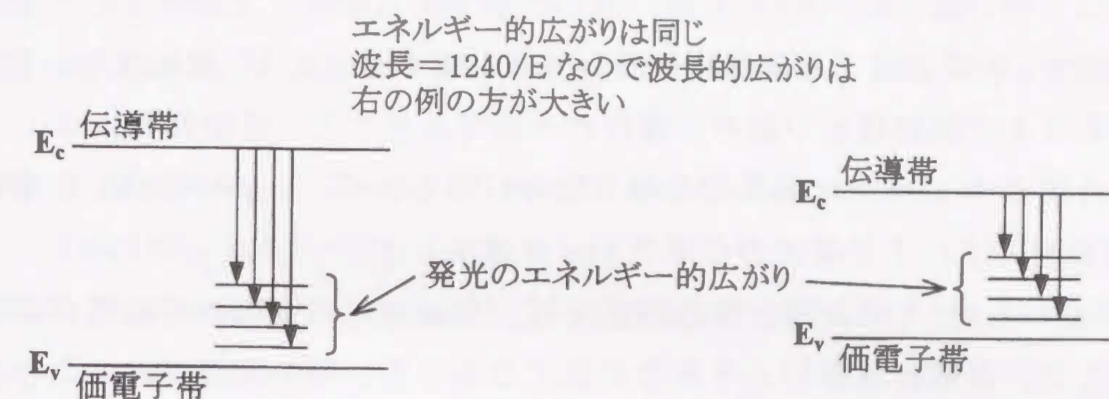 エネルギー的広がりは同じ
波長＝1240/E なので波長的広がりは
右の例の方が大きい
伝導帯
Ec
発光のエネルギー的広がり
Ev
価電子帯
伝導帯
Ec
Ev
価電子帯